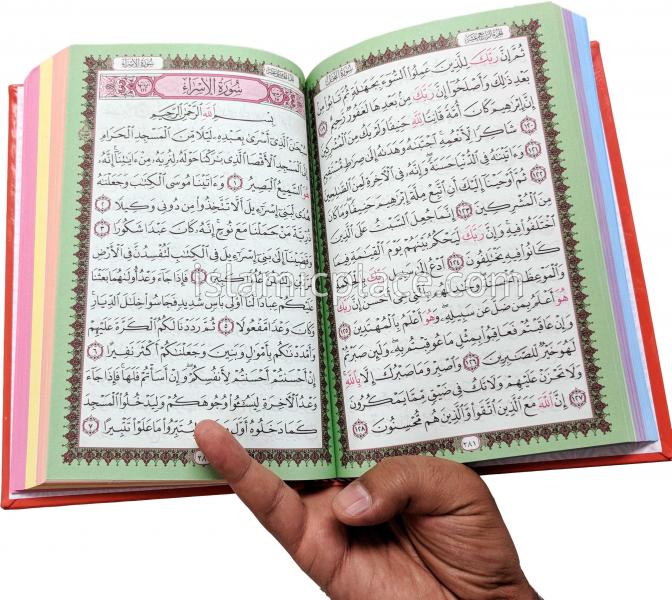 الجزء الرابع عشر
سورة النحل
ثُمَّ إِنَّ رَبَّكَ لِلَّذِينَ عَمِلُوا۟ ٱلسُّوٓءَ بِجَهَٰلَةٍ ثُمَّ تَابُوا۟ مِنۢ
بَعْدِ ذَٰلِكَ وَأَصْلَحُوٓا۟ إِنَّ رَبَّكَ مِنۢ بَعْدِهَا لَغَفُورٌ رَّحِيمٌ ١١٩
إِنَّ إِبْرَٰهِيمَ كَانَ أُمَّةً قَانِتًا لِّلَّهِ حَنِيفًا وَلَمْ يَكُ مِنَ ٱلْمُشْرِكِينَ ١٢٠
شَاكِرًا لِّأَنْعُمِهِ ٱجْتَبَىٰهُ وَهَدَىٰهُ إِلَىٰ صِرَٰطٍ مُّسْتَقِيمٍ ١٢١
وَءَاتَيْنَٰهُ فِى ٱلدُّنْيَا حَسَنَةً وَإِنَّهُۥ فِى ٱلْءَاخِرَةِ لَمِنَ ٱلصَّٰلِحِينَ ١٢٢
ثُمَّ أَوْحَيْنَآ إِلَيْكَ أَنِ ٱتَّبِعْ مِلَّةَ إِبْرَٰهِيمَ حَنِيفًا وَمَا كَانَ
مِنَ ٱلْمُشْرِكِينَ ١٢٣ إِنَّمَا جُعِلَ ٱلسَّبْتُ عَلَى ٱلَّذِينَ
ٱخْتَلَفُوا۟ فِيهِ وَإِنَّ رَبَّكَ لَيَحْكُمُ بَيْنَهُمْ يَوْمَ ٱلْقِيَٰمَةِ فِيمَا
كَانُوا۟ فِيهِ يَخْتَلِفُونَ ١٢٤ ٱدْعُ إِلَىٰ سَبِيلِ رَبِّكَ بِٱلْحِكْمَةِ
وَٱلْمَوْعِظَةِ ٱلْحَسَنَةِ وَجَٰدِلْهُم بِٱلَّتِى هِىَ أَحْسَنُ إِنَّ رَبَّكَ
هُوَ أَعْلَمُ بِمَن ضَلَّ عَن سَبِيلِهِۦ وَهُوَ أَعْلَمُ بِٱلْمُهْتَدِينَ ١٢٥
وَإِنْ عَاقَبْتُمْ فَعَاقِبُوا۟ بِمِثْلِ مَا عُوقِبْتُم بِهِۦ وَلَئِن صَبَرْتُمْ
لَهُوَ خَيْرٌ لِّلصَّٰبِرِينَ ١٢٦ وَٱصْبِرْ وَمَا صَبْرُكَ إِلَّا بِٱللَّهِ
وَلَا تَحْزَنْ عَلَيْهِمْ وَلَا تَكُ فِى ضَيْقٍ مِّمَّا يَمْكُرُونَ ١٢٧
إِنَّ ٱللَّهَ مَعَ ٱلَّذِينَ ٱتَّقَوا۟ وَّٱلَّذِينَ هُم مُّحْسِنُونَ ١٢٨
٢٨١
الجزء الخامس عشر
سورة الإسراء
سُورَةُ الإِسْرَاءِ
بِسْمِ ٱللَّهِ ٱلرَّحْمَٰنِ ٱلرَّحِيمِ
سُبْحَٰنَ ٱلَّذِىٓ أَسْرَىٰ بِعَبْدِهِۦ لَيْلًا مِّنَ ٱلْمَسْجِدِ ٱلْحَرَامِ
إِلَى ٱلْمَسْجِدِ ٱلْأَقْصَا ٱلَّذِى بَٰرَكْنَا حَوْلَهُۥ لِنُرِيَهُۥ مِنْ ءَايَٰتِنَآ إِنَّهُۥ
هُوَ ٱلسَّمِيعُ ٱلْبَصِيرُ ١ وَءَاتَيْنَا مُوسَى ٱلْكِتَٰبَ وَجَعَلْنَٰهُ
هُدًى لِّبَنِىٓ إِسْرَٰٓءِيلَ أَلَّا تَتَّخِذُوا۟ مِن دُونِى وَكِيلًا ٢
ذُرِّيَّةَ مَنْ حَمَلْنَا مَعَ نُوحٍ إِنَّهُۥ كَانَ عَبْدًا شَكُورًا ٣
وَقَضَيْنَآ إِلَىٰ بَنِىٓ إِسْرَٰٓءِيلَ فِى ٱلْكِتَٰبِ لَتُفْسِدُنَّ فِى ٱلْأَرْضِ
مَرَّتَيْنِ وَلَتَعْلُنَّ عُلُوًّا كَبِيرًا ٤ فَإِذَا جَآءَ وَعْدُ أُولَىٰهُمَا بَعَثْنَا
عَلَيْكُمْ عِبَادًا لَّنَآ أُو۟لِى بَأْسٍ شَدِيدٍ فَجَاسُوا۟ خِلَٰلَ ٱلدِّيَارِ
وَكَانَ وَعْدًا مَّفْعُولًا ٥ ثُمَّ رَدَدْنَا لَكُمُ ٱلْكَرَّةَ عَلَيْهِمْ
وَأَمْدَدْنَٰكُم بِأَمْوَٰلٍ وَبَنِينَ وَجَعَلْنَٰكُمْ أَكْثَرَ نَفِيرًا ٦
إِنْ أَحْسَنتُمْ أَحْسَنتُمْ لِأَنفُسِكُمْ وَإِنْ أَسَأْتُمْ فَلَهَا فَإِذَا جَآءَ
وَعْدُ ٱلْءَاخِرَةِ لِيَسُۥٓـُٔوا۟ وُجُوهَكُمْ وَلِيَدْخُلُوا۟ ٱلْمَسْجِدَ
كَمَا دَخَلُوهُ أَوَّلَ مَا عَلَوْا۟ تَتْبِيرًا ٧
islamicplace.com